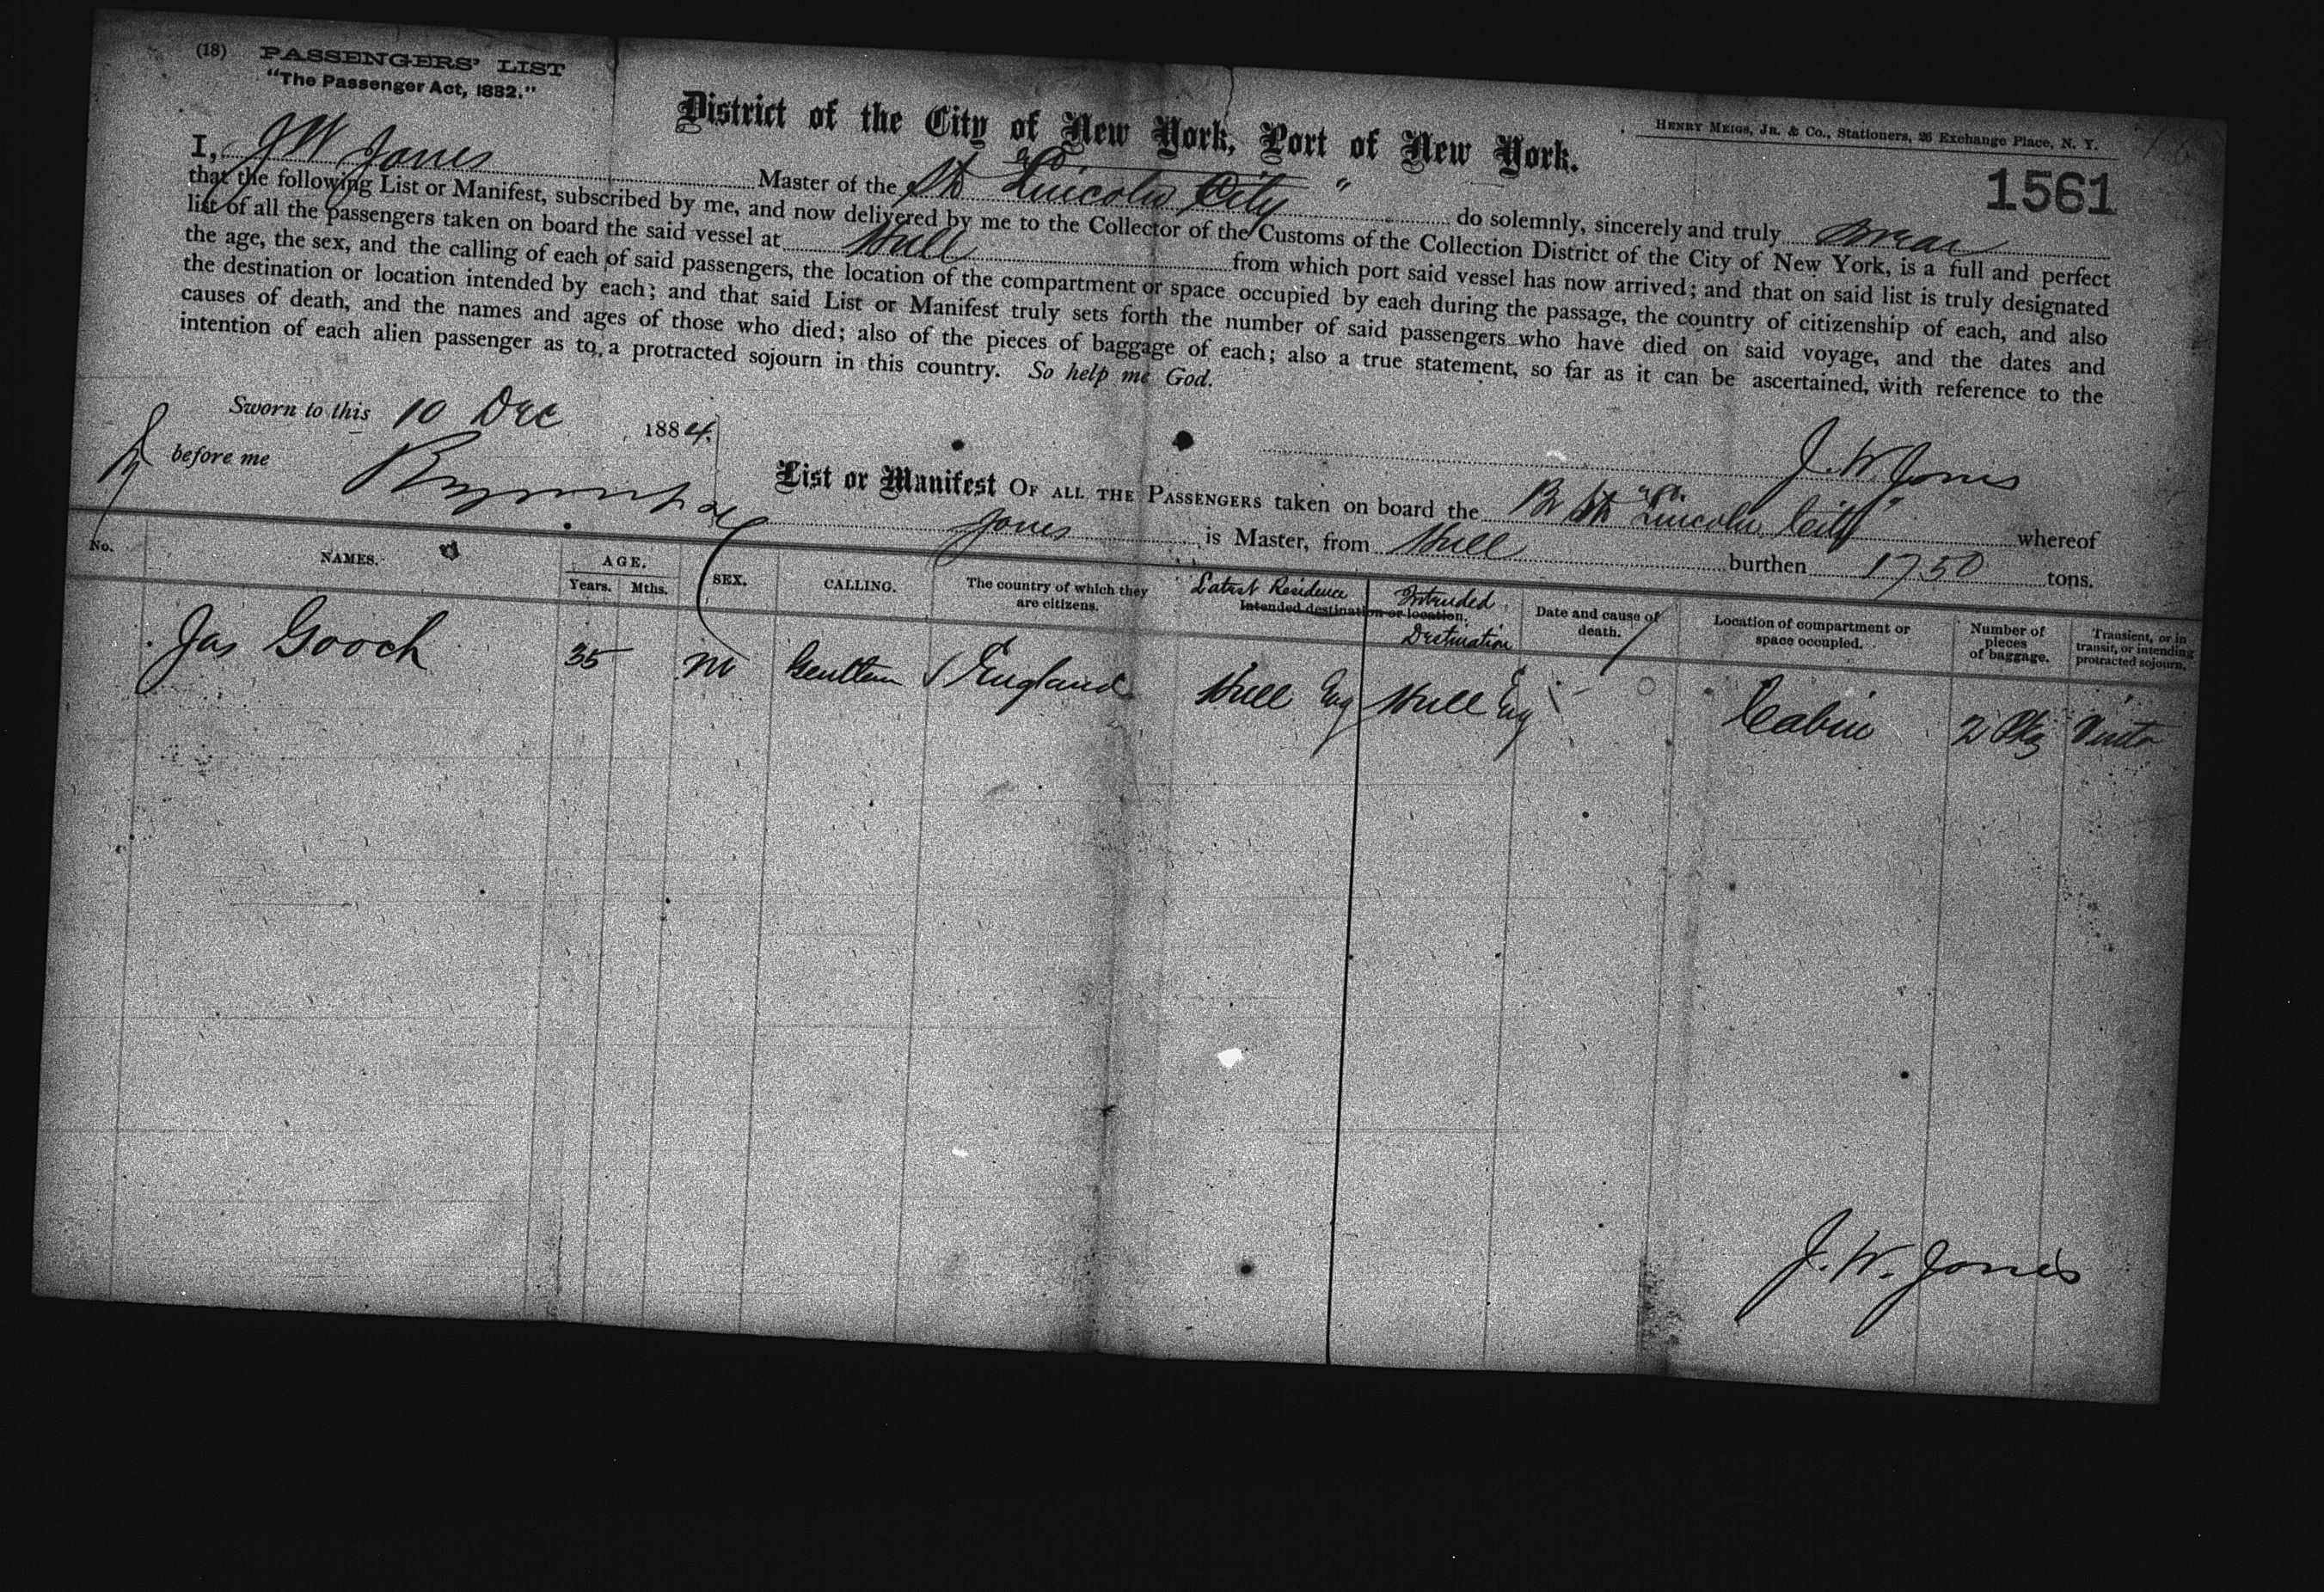 (18) PASSENGERS' LIST
"The Passenger Act, 1882."
District of the City of New York, Port of New York.
HENRY MEIGS, JR. & CO., Stationers, 26 Exchange Place, N. Y.
1561
I, J W Jones Master of the Str "Lincoln City" do solemnly, sincerely and truly Swear
that the following List or Manifest, subscribed by me, and now delivered by me to the Collector of the Customs of the Collection District of the City of New York, is a full and perfect
list of all the passengers taken on board the said vessel at Hull from which port said vessel has now arrived; and that on said list is truly designated
the age, the sex, and the calling of each of said passengers, the location of the compartment or space occupied by each during the passage, the country of citizenship of each, and also
the destination or location intended by each; and that said List or Manifest truly sets forth the number of said passengers who have died on said voyage, and the dates and
causes of death, and the names and ages of those who died; also of the pieces of baggage of each; also a true statement, so far as it can be ascertained, with reference to the
intention of each alien passenger as to a protracted sojourn in this country. So help me God.
Sworn to this 10 Dec 1884.
J. W. Jones
before me
List or Manifest OF ALL THE PASSENGERS taken on board the Br Str "Lincoln City" whereof
Jones is Master, from Hull burthen 1750 tons.
No. NAMES. AGE. Years. Mths. SEX. CALLING. The country of which they are citizens. Latest Residence Intended destination or location. Intended Destination Date and cause of death. Location of compartment or space occupied. Number of pieces of baggage. Transient, or in transit, or intending protracted sojourn.
Jas Gooch 35 M England Hull Eng Hull Eng Cabin 2 Pkg
J. W. Jones